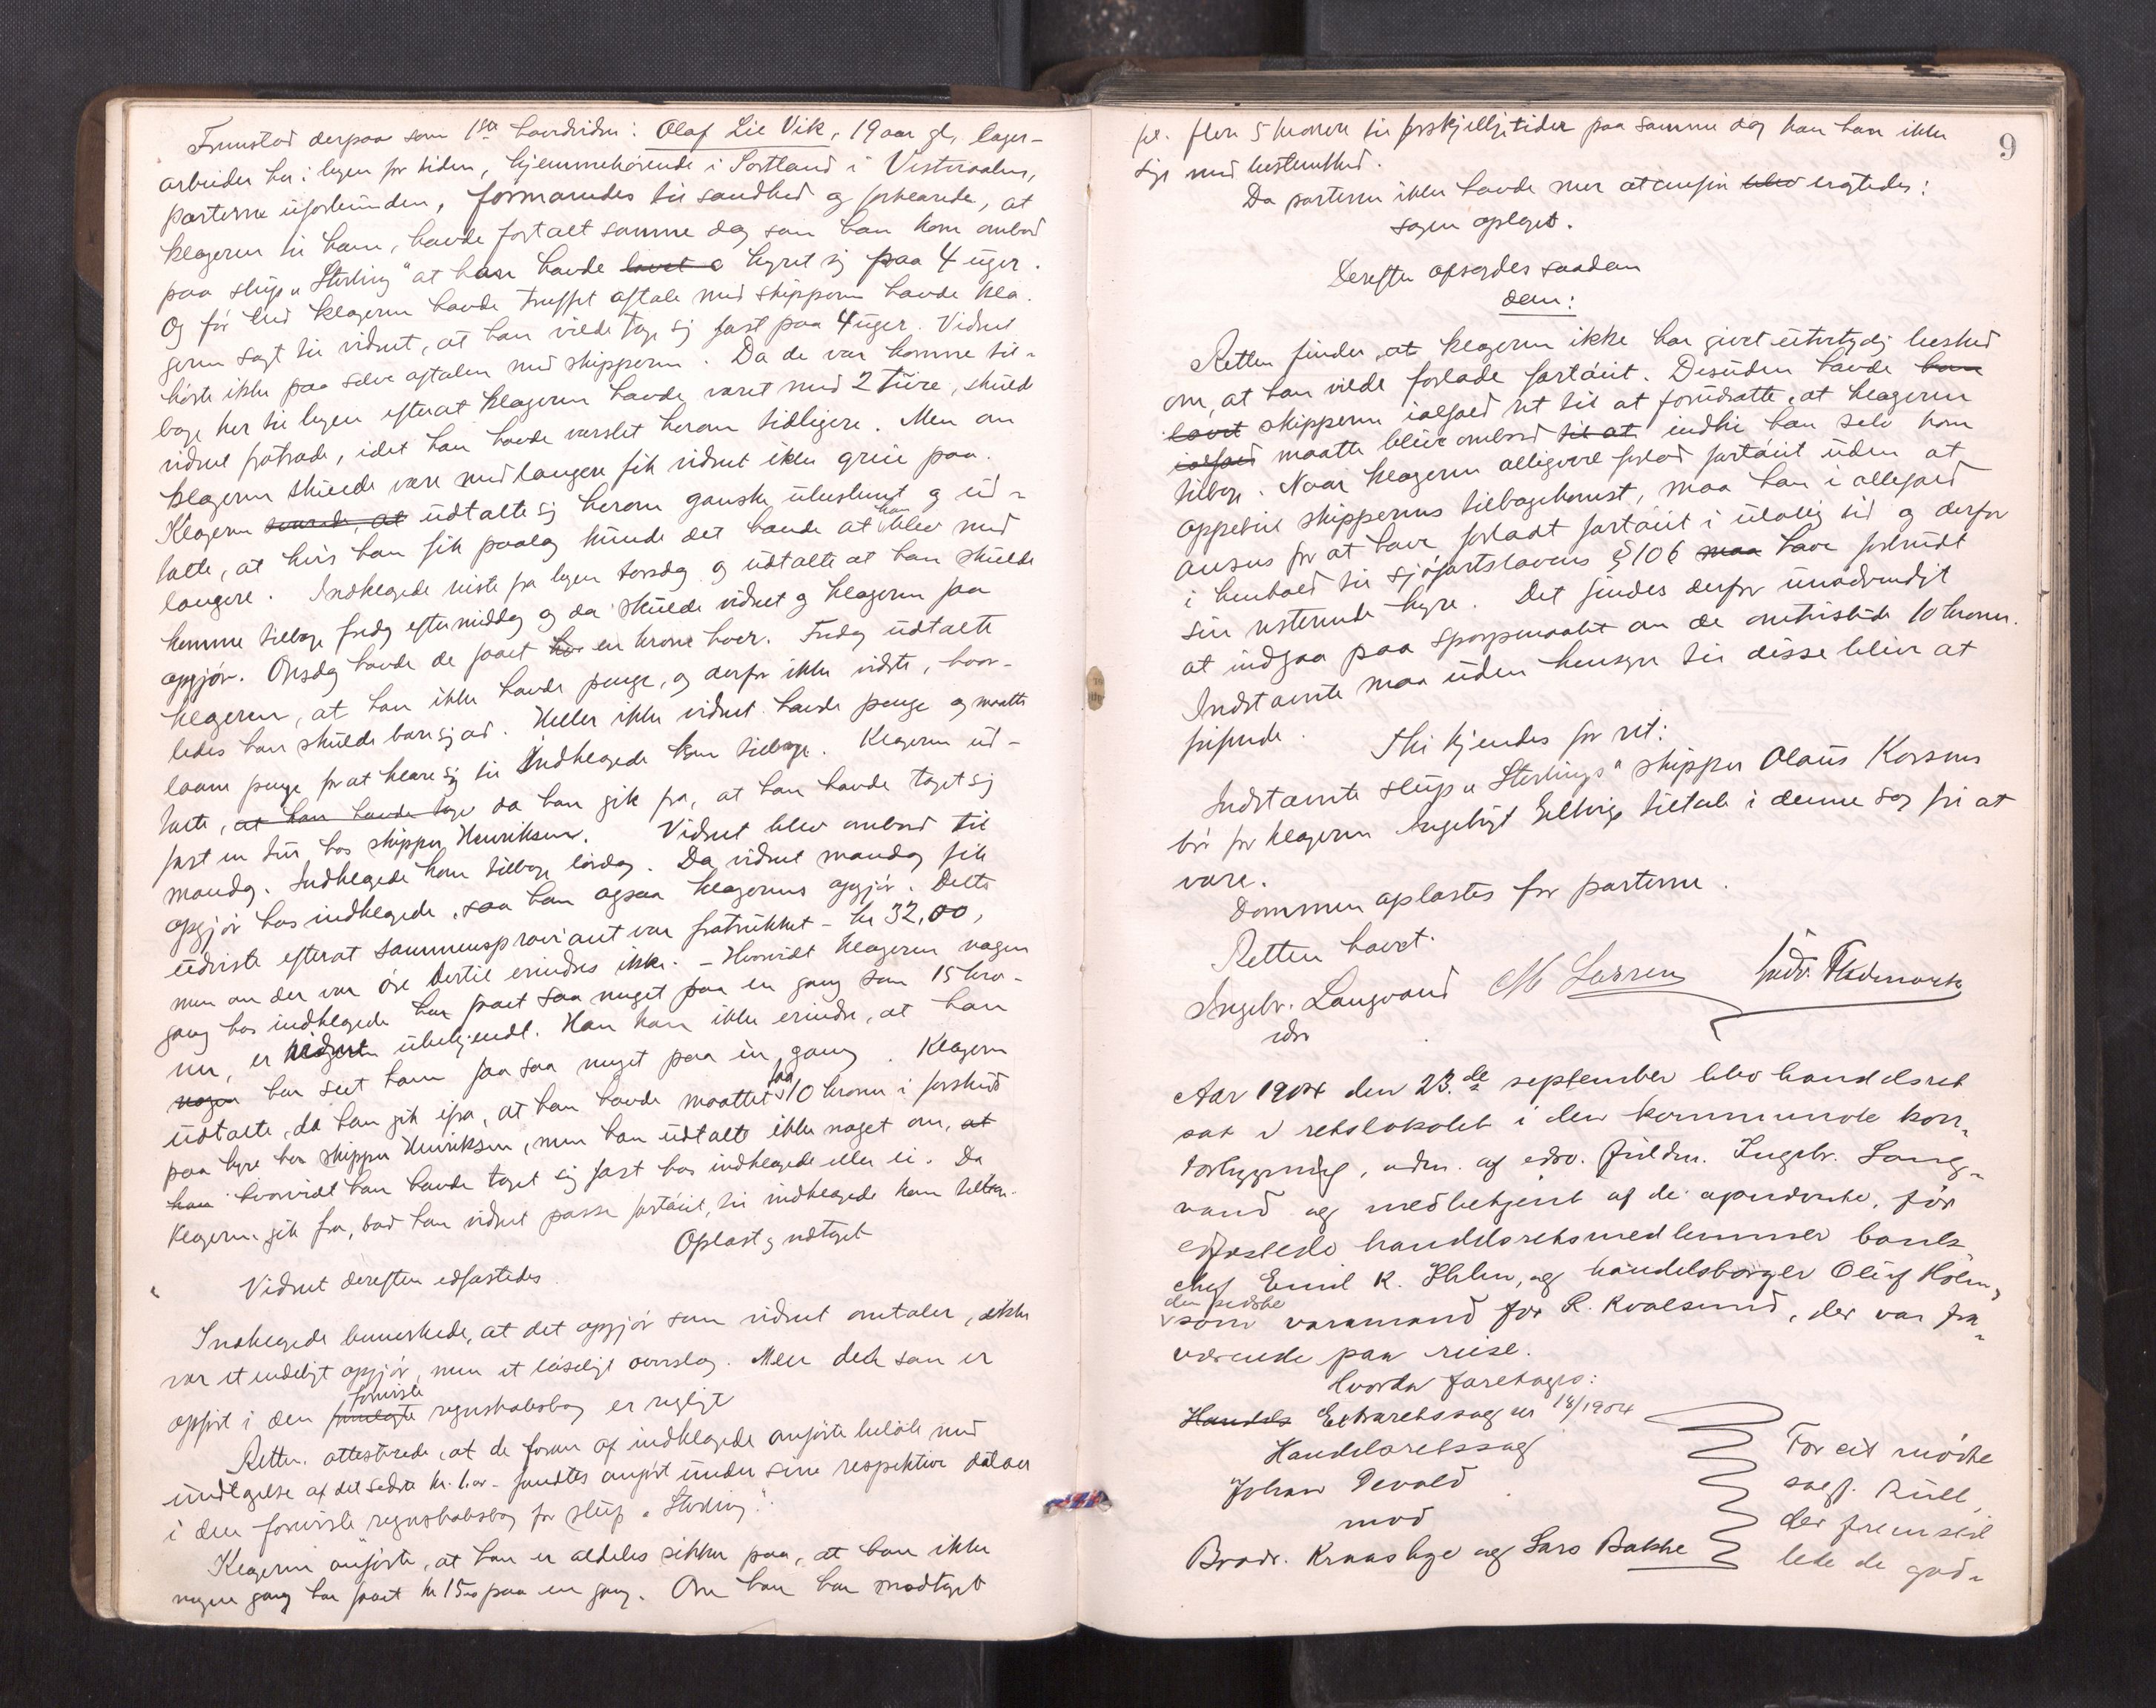 Fremstod derpaa som 1ste hovedvidne: Olaf Lie Vik, 19 aar gl, lager-
arbeider her i byen for tiden, hjemmehørende i Sortland i Vesteraalen,
parterne uforbunden, formanedes til sandhed og forklarede, at
klageren til ham, havde fortalt samme dag som han kom ombord
paa slup "Sterling" at han havde lovet o hyret sig paa 4 uger.
Og før end klageren havde truffet aftale med skipperen havde kla-
geren sagt til vidnet, at han vilde tage sig fast paa 4 uger. Vidnet
hørte ikke paa selve aftalen med skipperen. Da de var komne til-
bage her til byen efterat klageren havde været med 2 ture, skulde
vidnet fratræde, idet han havde varslet herom tidligere. Men om
klageren skulde være med længere fik vidnet ikke greie paa.
Klageren svarede, at udtalte sig herom ganske ubestemt og ud-
talte, at hvis han fik paalæg kunde det hænde at han blev med
længere. Indklagede reiste fra byen torsdag og udtalte at han skulde
komme tilbage fredag eftermiddag og da skulde vidnet og klageren faa
opgjør. Onsdag havde de faaet en krone hver. Fredag udtalte
klageren, at han ikke havde penge, og derfor ikke vidste, hvor-
ledes han skulde bære sig ad. Heller ikke vidnet havde penge og maatte
laane penge for at klare sig til Indklagede kom tilbage. Klageren ud-
talte, at han havde tage da han gik fra, at han havde taget sig
fast en tur hos skipper Henriksen. Vidnet blev ombord til
mandag. Indklagede kom tilbage lørdag. Da vidnet mandag fik
opgjør hos indklagede, saa han ogsaa klagerens opgjør. Dette
udviste efterat sammensproviant var fratrukket - kr 32,00,
men om der var øre dertil erindres ikke. - Hvorvidt klageren nogen
gang hos indklagede har faaet saa meget paa en gang som 15 kro-
ner, er vidnet ubekjendt. Han kan ikke erindre, at han
nogen har seet ham faa saa meget paa en gang. Klageren
udtalte, da han gik ifra, at han havde maattet faa 10 kroner i forskud
paa hyre hos skipper Henriksen, men han udtalte ikke noget om, at
han hvorvidt han havde taget sig fast hos indklagede eller ei. Da
klageren gik fra, bad han vidnet passe fartøiet, til indklagede kom tilbage.
Oplæst og vedtaget
Vidnet derefter edfæstedes.
Indklagede bemerkede, at det opgjør som vidnet omtaler, ikke
var et endeligt opgjør, men et løseligt overslag. Men det som er
opført i den foreviste fremlagte regnskabsbog er rigtigt
Retten attesterede, at de foran af indklagede anførte beløb med
undtagelse af det sidste kr. 1.00 - fandtes anført under sine respektive datoer
i den foreviste regnskabsbog for slup "Sterling".
Klageren anførte, at han er aldeles sikker paa, at han ikke
nogen gang har faaet kr 15.00 paa en gang. Om han har modtaget
9
flere 5 kroner til forskjellige tider paa samme dag kan han ikke
sige med bestemthed.
Da parterne ikke havde mer at anføre blev eragtedes:
sagen optaget.
Derefter afsagdes saadan
dom:
Retten finder, at klageren ikke har givet utvetydig besked
om, at han vilde forlade fartøiet. Desuden havde han
lovet skipperen ialfald ret til at forudsætte, at klageren
ialfald maatte blive ombord til at indtil han selv kom
tilbage. Naar klageren alligevel forlod fartøiet uden at
oppebie skipperens tilbagekomst, maa han i allefald
ansees for at have forladt fartøiet i utide og derfor
i henhold til sjøfartslovens § 106 maa have forbrudt
sin resterende hyre. Det findes derfor unødvendigt
at indgaa paa spørgsmaalet om de omtvistede 10 kroner.
Indstævnte maa uden hensyn til disse blive at
frifinde.
Thi kjendes for ret:
Indstævnte slup "Sterlings" skipper Olaus Korsnes
bør for klageren Ingebrigt tiltale i denne sag fri at
være.
Dommen oplæstes for parterne.
Retten hævet.
Ingebr. Langvand
Aar 1904 den 23.de september blev handelsret
sat i retslokalet i den kommunale kon-
torbygning, adm. af edsv. fuldm. Ingebr. Lang-
vand og medbetjent af de opnævnte, før
edfæstede handelsretsmedlemmer bank-
chef Emil K. og handelsborger Oluf Holm,
den sidste
som varamand for R. Kvalsund, der var fra-
værende paa reise.
Hvorda foretages:
Handels Extraretssag nr 18/1904
Handelsretssag
Johan Devold
mod
Brødr. Kraaslye og Lars Bakke
For cit mødte
sagf. Rüll,
der fremstil-
lede de god-